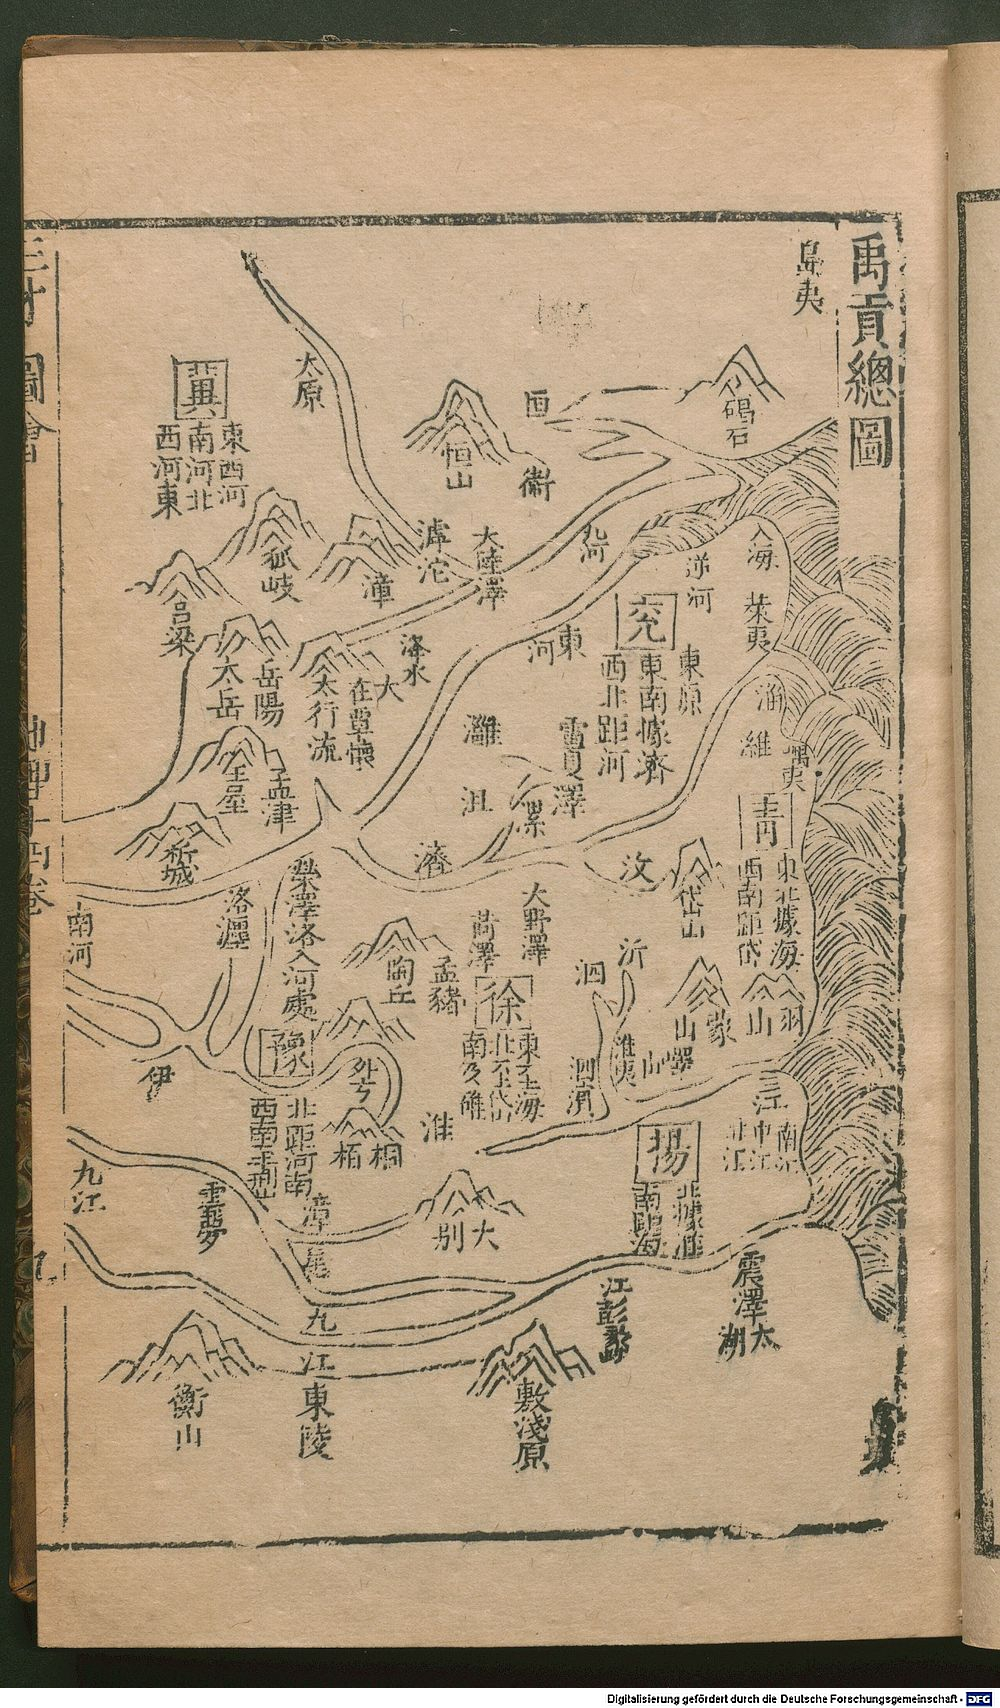 禹貢總圖
島夷
碣石
恒
衛
恒山
太原
冀
東西河
南河北
西河東
滹沱
大陸澤
漳
狐岐
呂梁
太岳
岳陽
太行
流
在覃懷
大
洚水
王屋
孟津
析城
逆河
入海
萊夷
兗
東南據濟
西北距河
東原
東
河
雷夏澤
灉
沮
濟
漯
濰
嵎夷
青
東北據海
西南距岱
汶
岱山
大野澤
菏澤
沂
泗
蒙
山
羽
山
嶧
山
淮夷
泗濱
徐
東至海
北至岱
南及淮
孟豬
陶丘
滎澤洛入河處
洛
瀍
南河
伊
豫
北距河南
西南至荊山
外方
桐
柏
淮
揚
北據淮
南距海
江
南江
中江
北江
震澤
太
湖
江
彭蠡
大
別
漳
九江
雲夢
九
江
東陵
衡山
敷淺原
三才圖會
地理十四卷
Digitalisierung gefördert durch die Deutsche Forschungsgemeinschaft - DFG